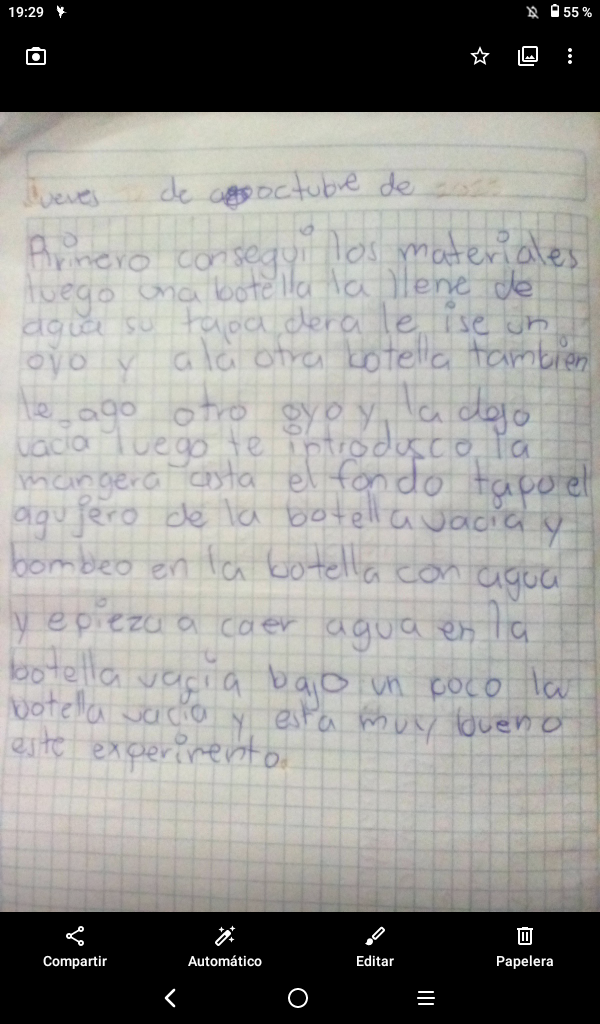 19:29
55 %
Jueves de octubre de
Primero conseguí los materiales
luego una botella la llene de
agua su tapa dera le ise un
oyo y a la otra botella tambien
le ago otro oyo y la dejo
vacia luego te introdusco la
mangera asta el fondo tapo el
agujero de la botella vacia y
bombeo en la botella con agua
y epieza a caer agua en la
botella vacia bajo un poco la
botella vacia y esta muy bueno
este experimento.
Compartir
Automático
Editar
Papelera